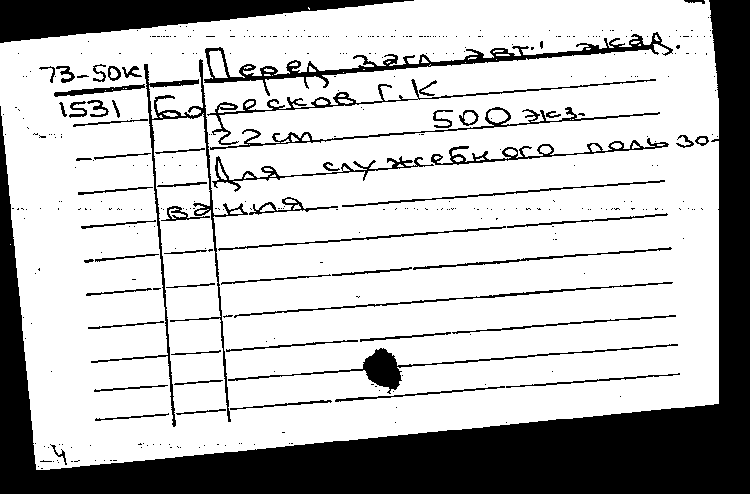 73-50к Перед загл. авт.: акад.
1531 Боресков Г.К
22 см 500 экз.
Для служебного пользо-
вания
4